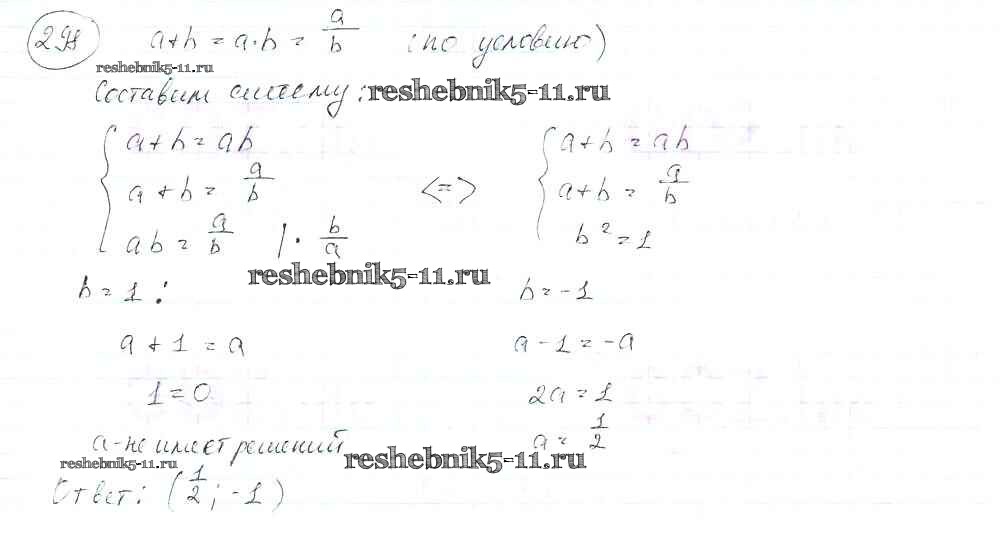 a+b = a·b = a/b (по условию)
reshebnik5-11.ru
Составим систему: reshebnik5-11.ru
{ a+b = ab
a+b = a/b
ab = a/b | · b/a
<=>
{ a+b = ab
a+b = a/b
b² = 1
reshebnik5-11.ru
b = 1:
a+1 = a
1 = 0
a - не имеет решений
b = -1
a-1 = -a
2a = 1
a = 1/2
reshebnik5-11.ru
reshebnik5-11.ru
Ответ: (1/2; -1)